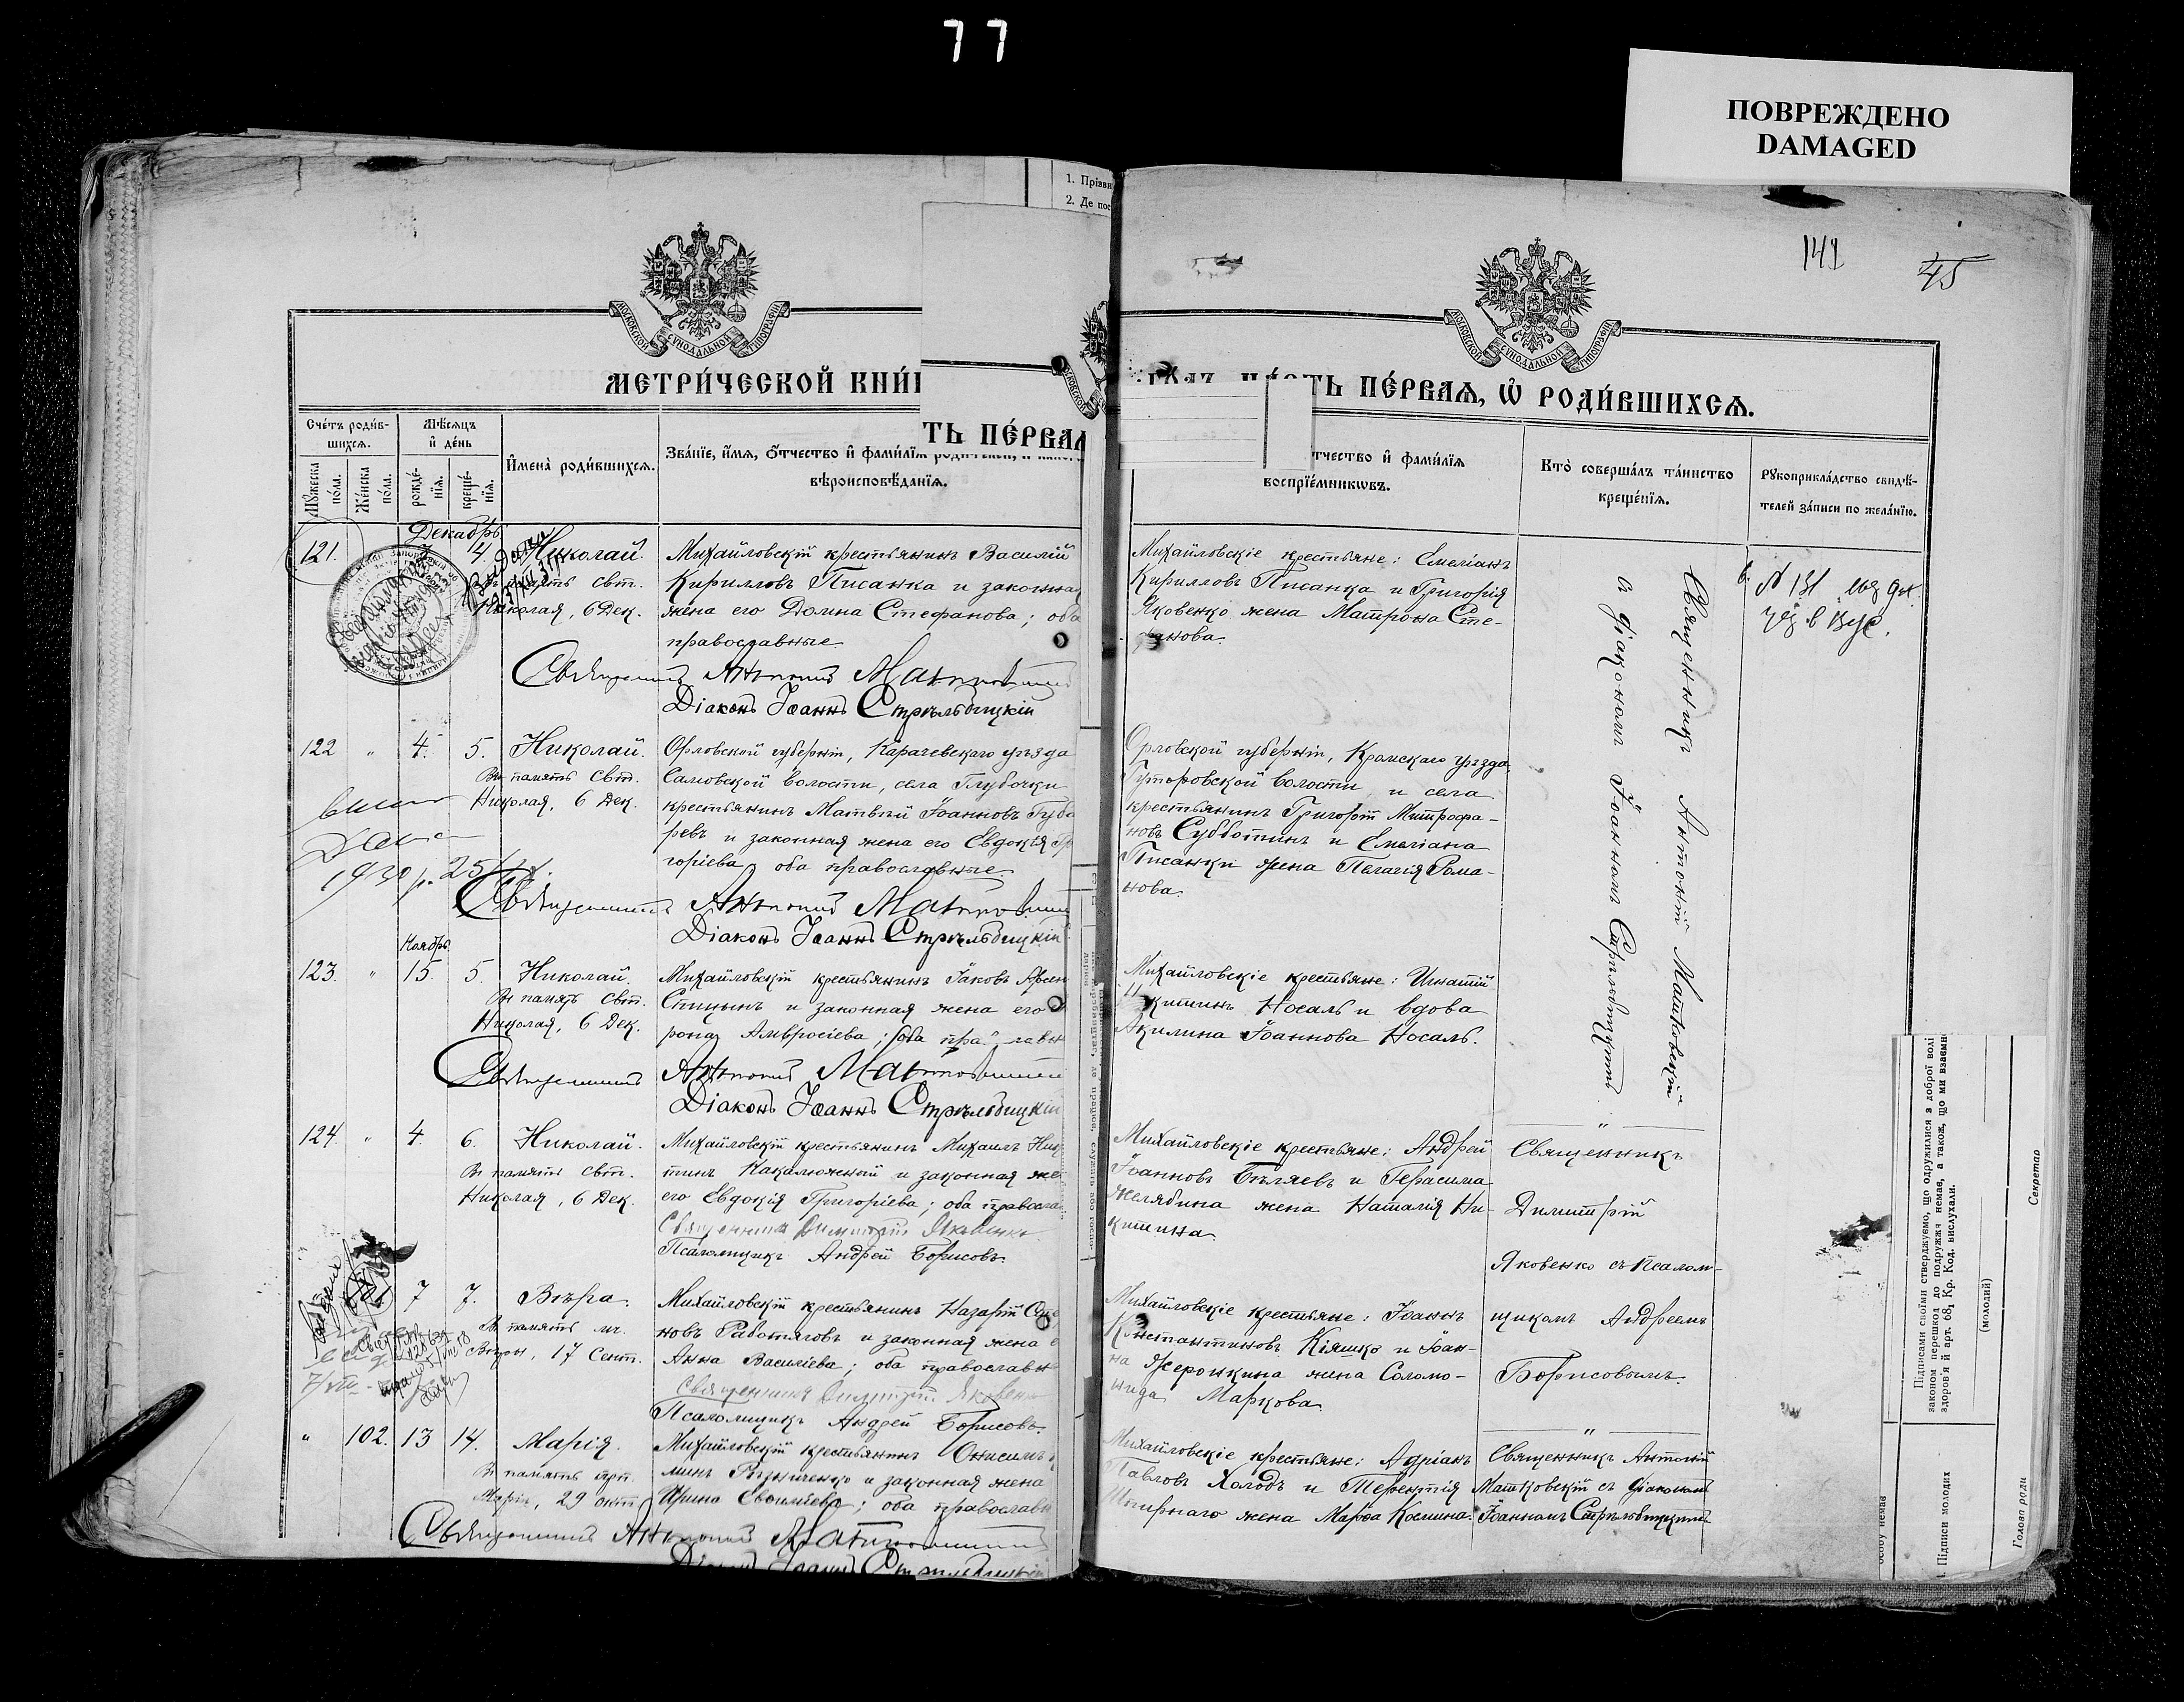 77
ПОВРЕЖДЕНО
DAMAGED
1. Прізви
2. Де пос
141
45
МОСКОВСКОЙ СѴНОДАЛЬНОЙ ТИПОГРАФІИ
МОСКОВСКОЙ СѴНОДАЛЬНОЙ ТИПОГРАФІИ
МЕТРИ́ЧЕСКОЙ КНИ́
ТЬ ПЕ́РВАѦ
ТЬ ПЕ́РВАѦ, Ѡ҆ РОДИ́ВШИХСѦ.
Сче́тъ роди́в-
шихсѧ.
Мѣ́сѧцъ
и҆ де́нь
Мꙋ́жеска по́ла.
Же́нска по́ла.
рожде́-нїѧ.
креще́-нїѧ.
И҆мена̀ роди́вшихсѧ.
Зва́нїе, и҆́мѧ, ѻ҆́тчество и҆ фами́лїѧ
вѣроисповѣ́данїѧ.
тчество и҆ фами́лїѧ
воспрїе́мникѡвъ.
Кто̀ соверша́лъ та́инство
креще́нїѧ.
Рꙋкоприкла́дство свидѣ́-
телей за́писи по жела́нїю.
Декабрь
121. 4. Николай.
Въ память свт.
Николая, 6 Дек.
Михайловскій крестьянинъ Василій
Кирилловъ Писанка и законная
жена его Домна Стефанова; оба
православные.
Священникъ Антоній Матковскій
Діаконъ Іоаннъ Стрѣльбицкій
Михайловскіе крестьяне: Емеліанъ
Кирилловъ Писанка и Григорія
Яковенко жена Матрона Сте-
фанова.
Священникъ Антоній Матковскій
съ діакономъ Іоанномъ Стрѣльбицкимъ
122 " 4. 5. Николай.
Въ память свт.
Николая, 6 Дек.
1930 р. 25/
Орловской губерніи, Карачевскаго уѣзда
Самовской волости, села Глубочки
крестьянинъ Матвѣй Іоанновъ Губа
ревъ и законная жена его Евдокія Гр
горіева, оба православные.
Священникъ Антоній Матковскій
Діаконъ Іоаннъ Стрѣльбицкій
Орловской губерніи, Кромскаго уѣзда,
Гуторовской волости, и села
крестьянинъ Григорій Митрофа-
новъ Субботинъ и Емеліана
Писанки жена Пелагія Рома-
нова.
Ноябрь
123. " 15. 5. Николай.
Въ память свт.
Николая, 6 Дек.
Михайловскій крестьянинъ Іаковъ Арсен
Спицынъ и законная жена его
рона Амвросіева; оба
Священникъ Антоній Матковскій
Діаконъ Іоаннъ Стрѣльбицкій
Михайловскіе крестьяне: Игнатій
Никитинъ Носаль и вдова
Акилина Іоаннова Носаль.
124. " 4. 6. Николай.
Въ память свт.
Николая, 6 Дек.
Михайловскій крестьянинъ Михаилъ Ник
тинъ Какалюжный и законная же
его Евдокія Григоріева; оба правосла
Священникъ Димитрій Яковенко
Псаломщикъ Андрей Борисовъ.
Михайловскіе крестьяне: Андрей
Іоанновъ Бѣляевъ и Герасима
Желябина жена Наталія Ни-
китина.
Священникъ
Димитрій
Яковенко съ псалом-
щикомъ Андреемъ
Борисовымъ.
7 7. Вѣра.
Въ память мч.
Вѣры, 17 Сент.
Михайловскій крестьянинъ Назарій
новъ Работяговъ и законная жена е
Анна Василіева; оба православн
Священникъ Димитрій Яковенко
Псаломщикъ Андрей Борисовъ.
Михайловскіе крестьяне: Іоаннъ
Константиновъ Кіяшко и Іоан-
на Жеронкина жена Соломо-
нида Маркова.
" 102. 13 14. Марія.
Въ память прп.
Маріи, 29 окт.
Михайловскій крестьянинъ Онисимъ
минъ Рѣзниченко и законная жена
Ирина Евфиміева; оба православн
Священникъ Антоній Матковскій
Діаконъ Іоаннъ Стрѣльбицкій
Михайловскіе крестьяне: Адріанъ
Павловъ Холодъ и Терентія
жена Марфа Космина.
Священникъ Антоній
Матковскій съ діакономъ
Іоанномъ Стрѣльбицкимъ
Підписами своїми стверджуємо, що одружилися з доброї волі
законом перешкод до подружжя немає, а також, що ми взаємно
здоров'я й арт. 68₁ Кр. Код. вислухали.
(молодий)
Секретар
Підписи молодих
Голова ради